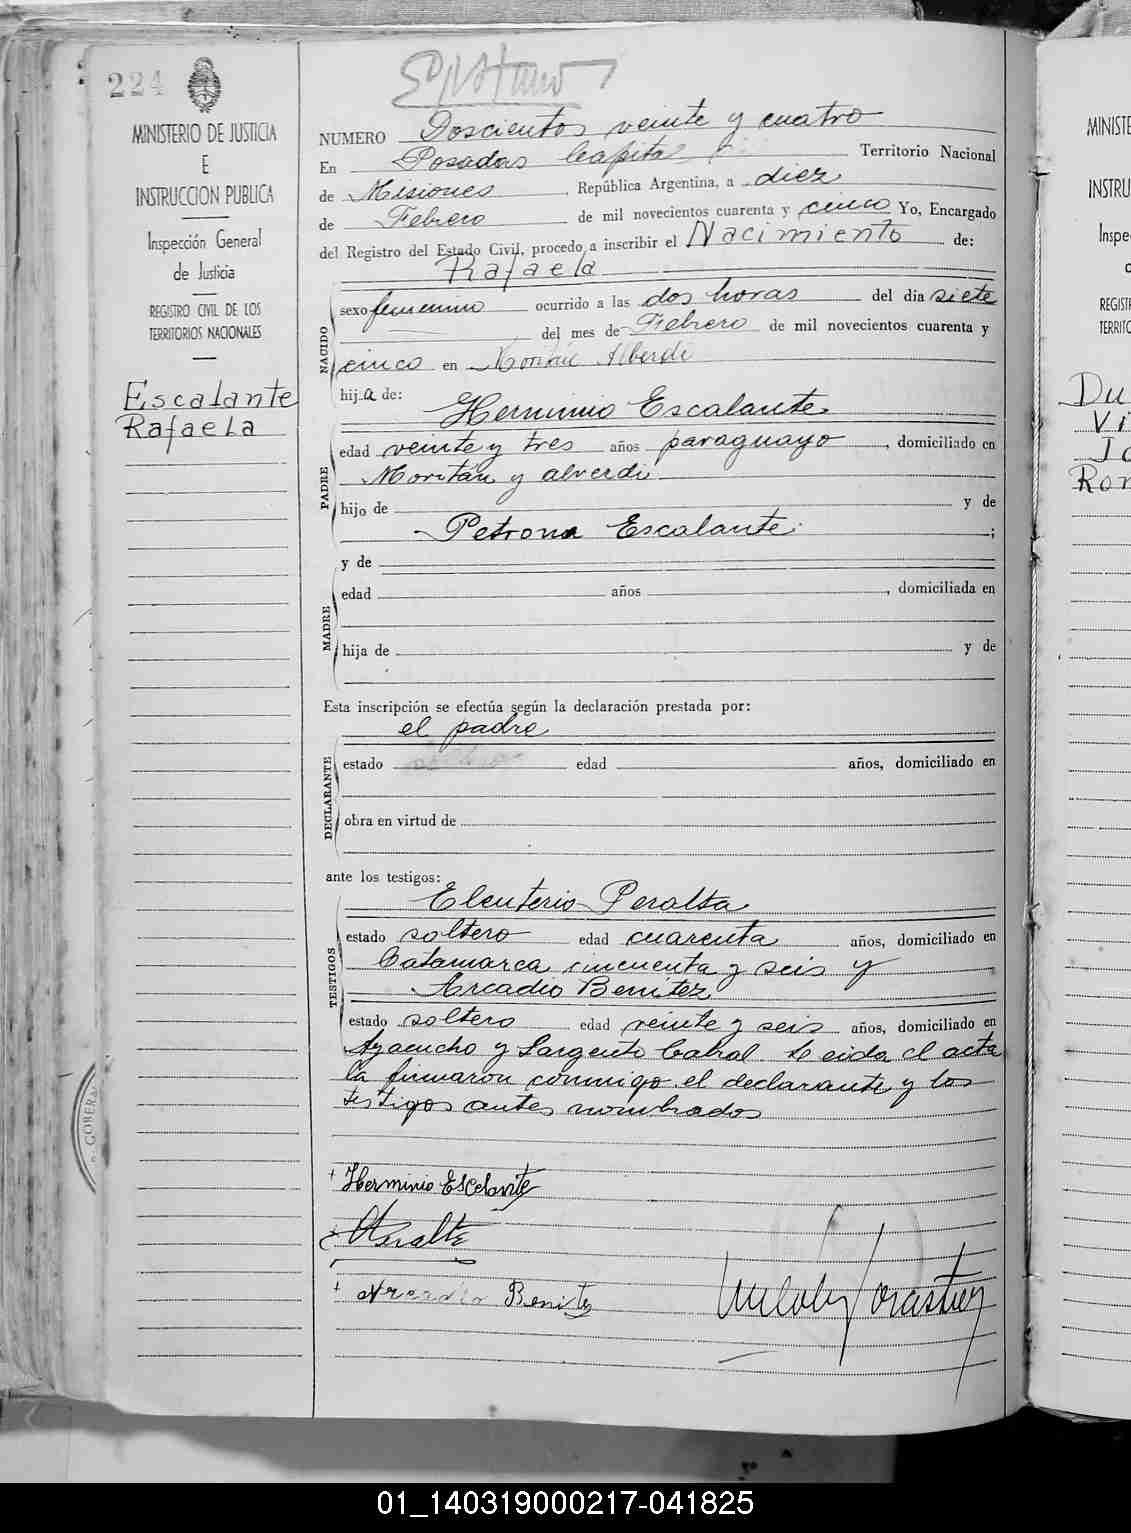 224
MINISTERIO DE JUSTICIA
E
INSTRUCCION PUBLICA
Inspección General
de Justicia
REGISTRO CIVIL DE LOS
TERRITORIOS NACIONALES
Escalante
Rafaela
NUMERO Doscientos veinte y cuatro
En Posadas Capital Territorio Nacional
de Misiones, República Argentina, a diez
de Febrero de mil novecientos cuarenta y cinco Yo, Encargado
del Registro del Estado Civil, procedo a inscribir el Nacimiento de:
Rafaela
NACIDO
sexo femenino ocurrido a las dos horas del dia siete
del mes de Febrero de mil novecientos cuarenta y
cinco en Moritán Alberdi
hija de:
Herminio Escalante
PADRE
edad veinte y tres años paraguayo, domiciliado en
Moritán y alverdi
hijo de y de
Petrona Escalante ;
y de
MADRE
edad años , domiciliada en
hija de y de
Esta inscripción se efectúa según la declaración prestada por:
el padre
DECLARANTE
estado edad años, domiciliado en
obra en virtud de
ante los testigos:
Eleuterio Peralta
TESTIGOS
estado soltero edad cuarenta años, domiciliado en
Catamarca cincuenta y seis y
Arcadio Benitez
estado soltero edad veinte y seis años, domiciliado en
Ayacucho y Sargento Cabral. Leida el acta
la firmaron conmigo el declarante y los
testigos antes nombrados
Herminio Escalante
Peralta
Arcadio Benitez
GOBER
MINISTE
INSTRU
Inspe
REGIST
TERRITO
Du
Vi
Jo
Ron
01_140319000217-041825